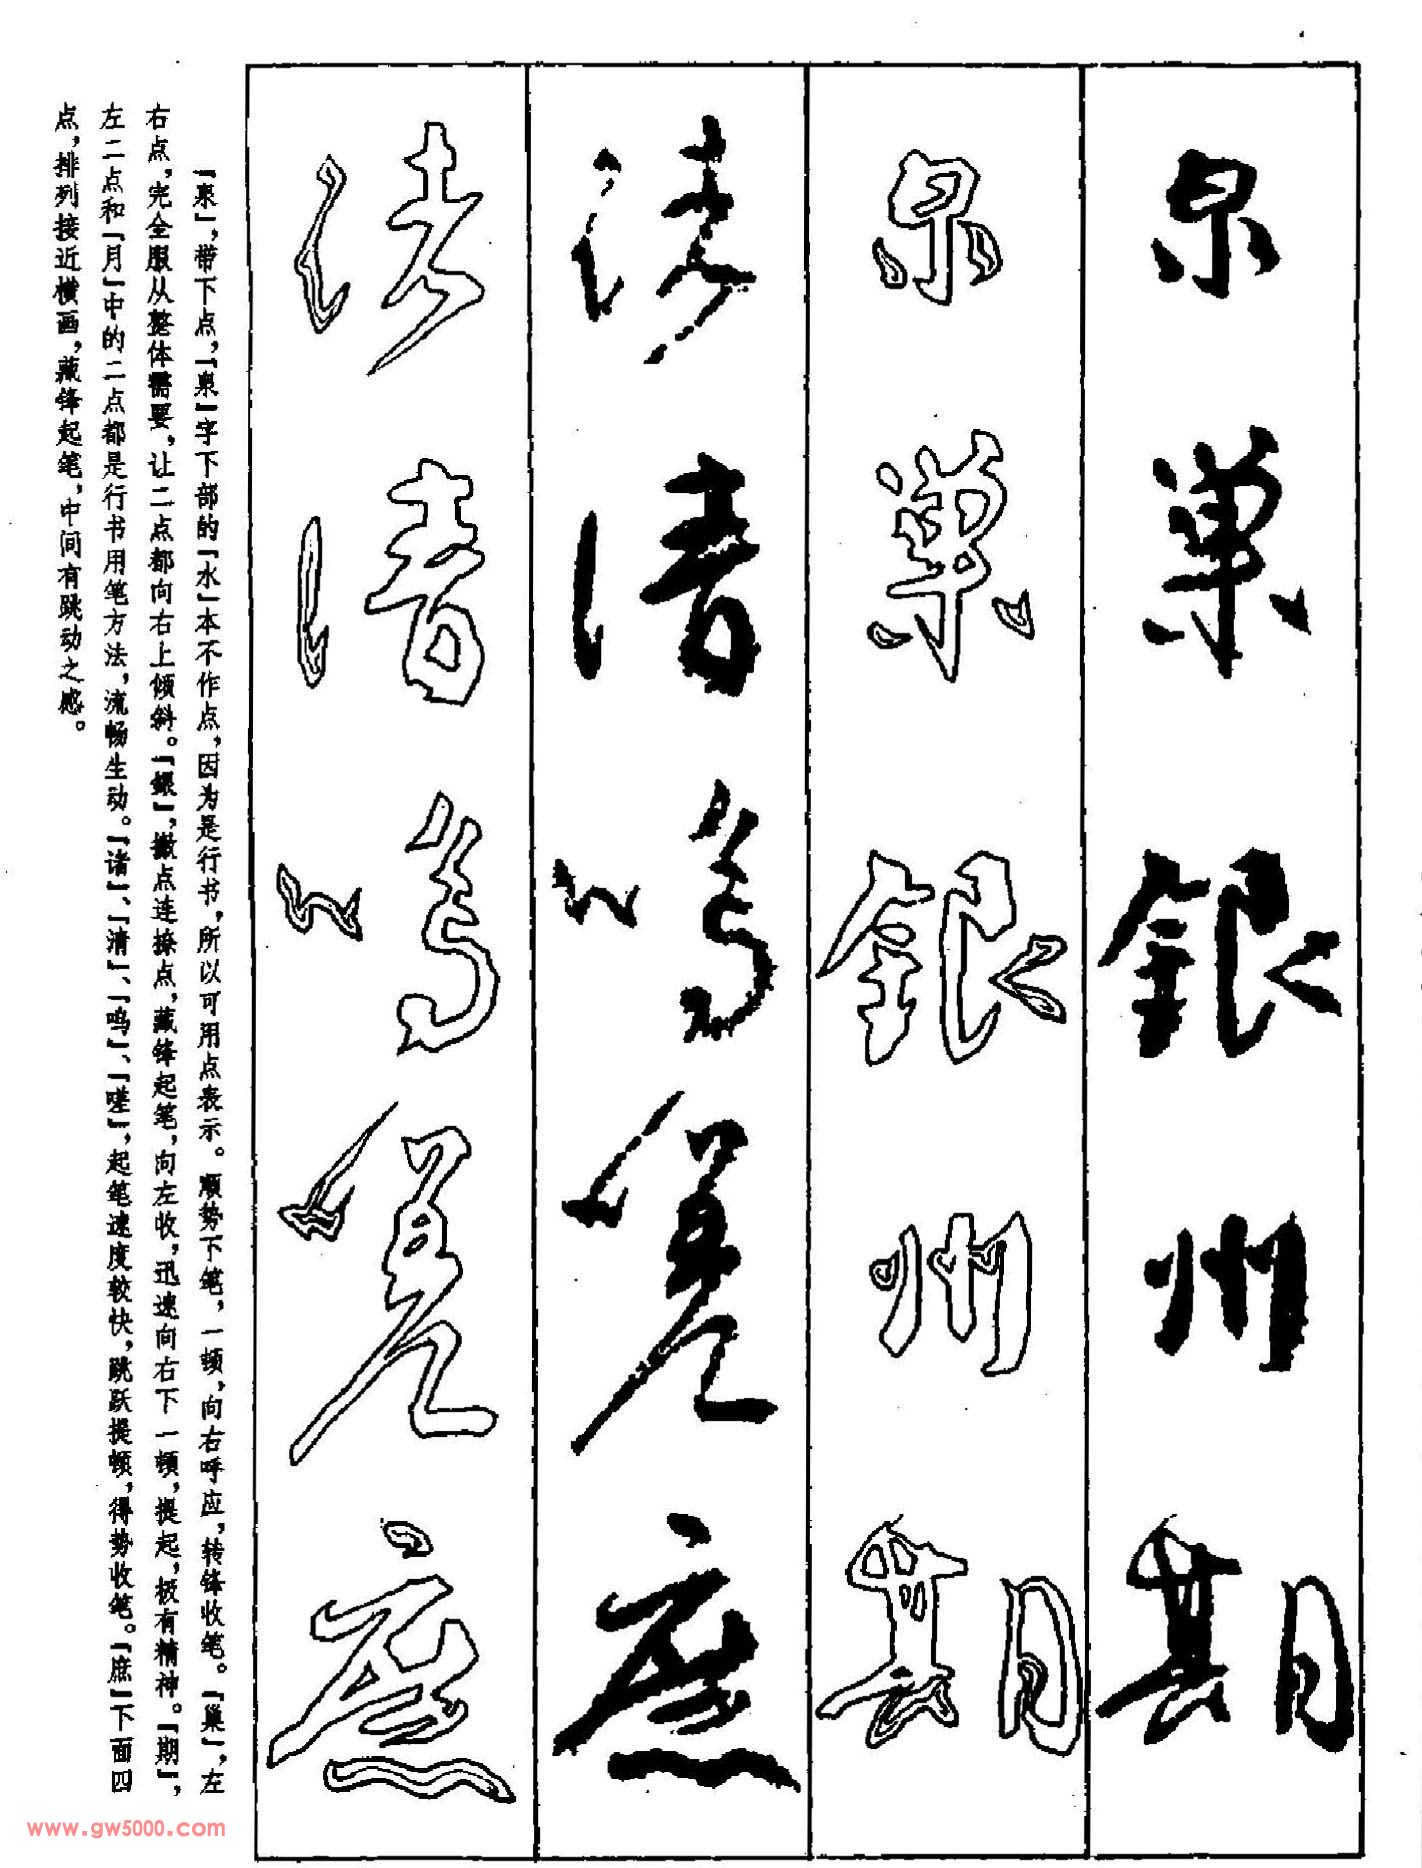 泉巢銀州期
泉巢銀州期
诸清鸣嗟庶
诸清鸣嗟庶
「泉」，带下点，「泉」字下部的「水」本不作点，因为是行书，所以可用点表示。顺势下笔，一顿，向右呼应，转锋收笔。「巢」，左
右点，完全服从整体需要，让二点都向右上倾斜。「銀」，撇点连捺点，藏锋起笔，向左收，迅速向右下一顿，提起，极有精神。「期」，
左二点和「月」中的二点都是行书用笔方法，流畅生动。「诸」、「清」、「鸣」、「嗟」，起笔速度较快，跳跃提顿，得势收笔。「庶」下面四
点，排列接近横画，藏锋起笔，中间有跳动之感。
www.gw5000.com